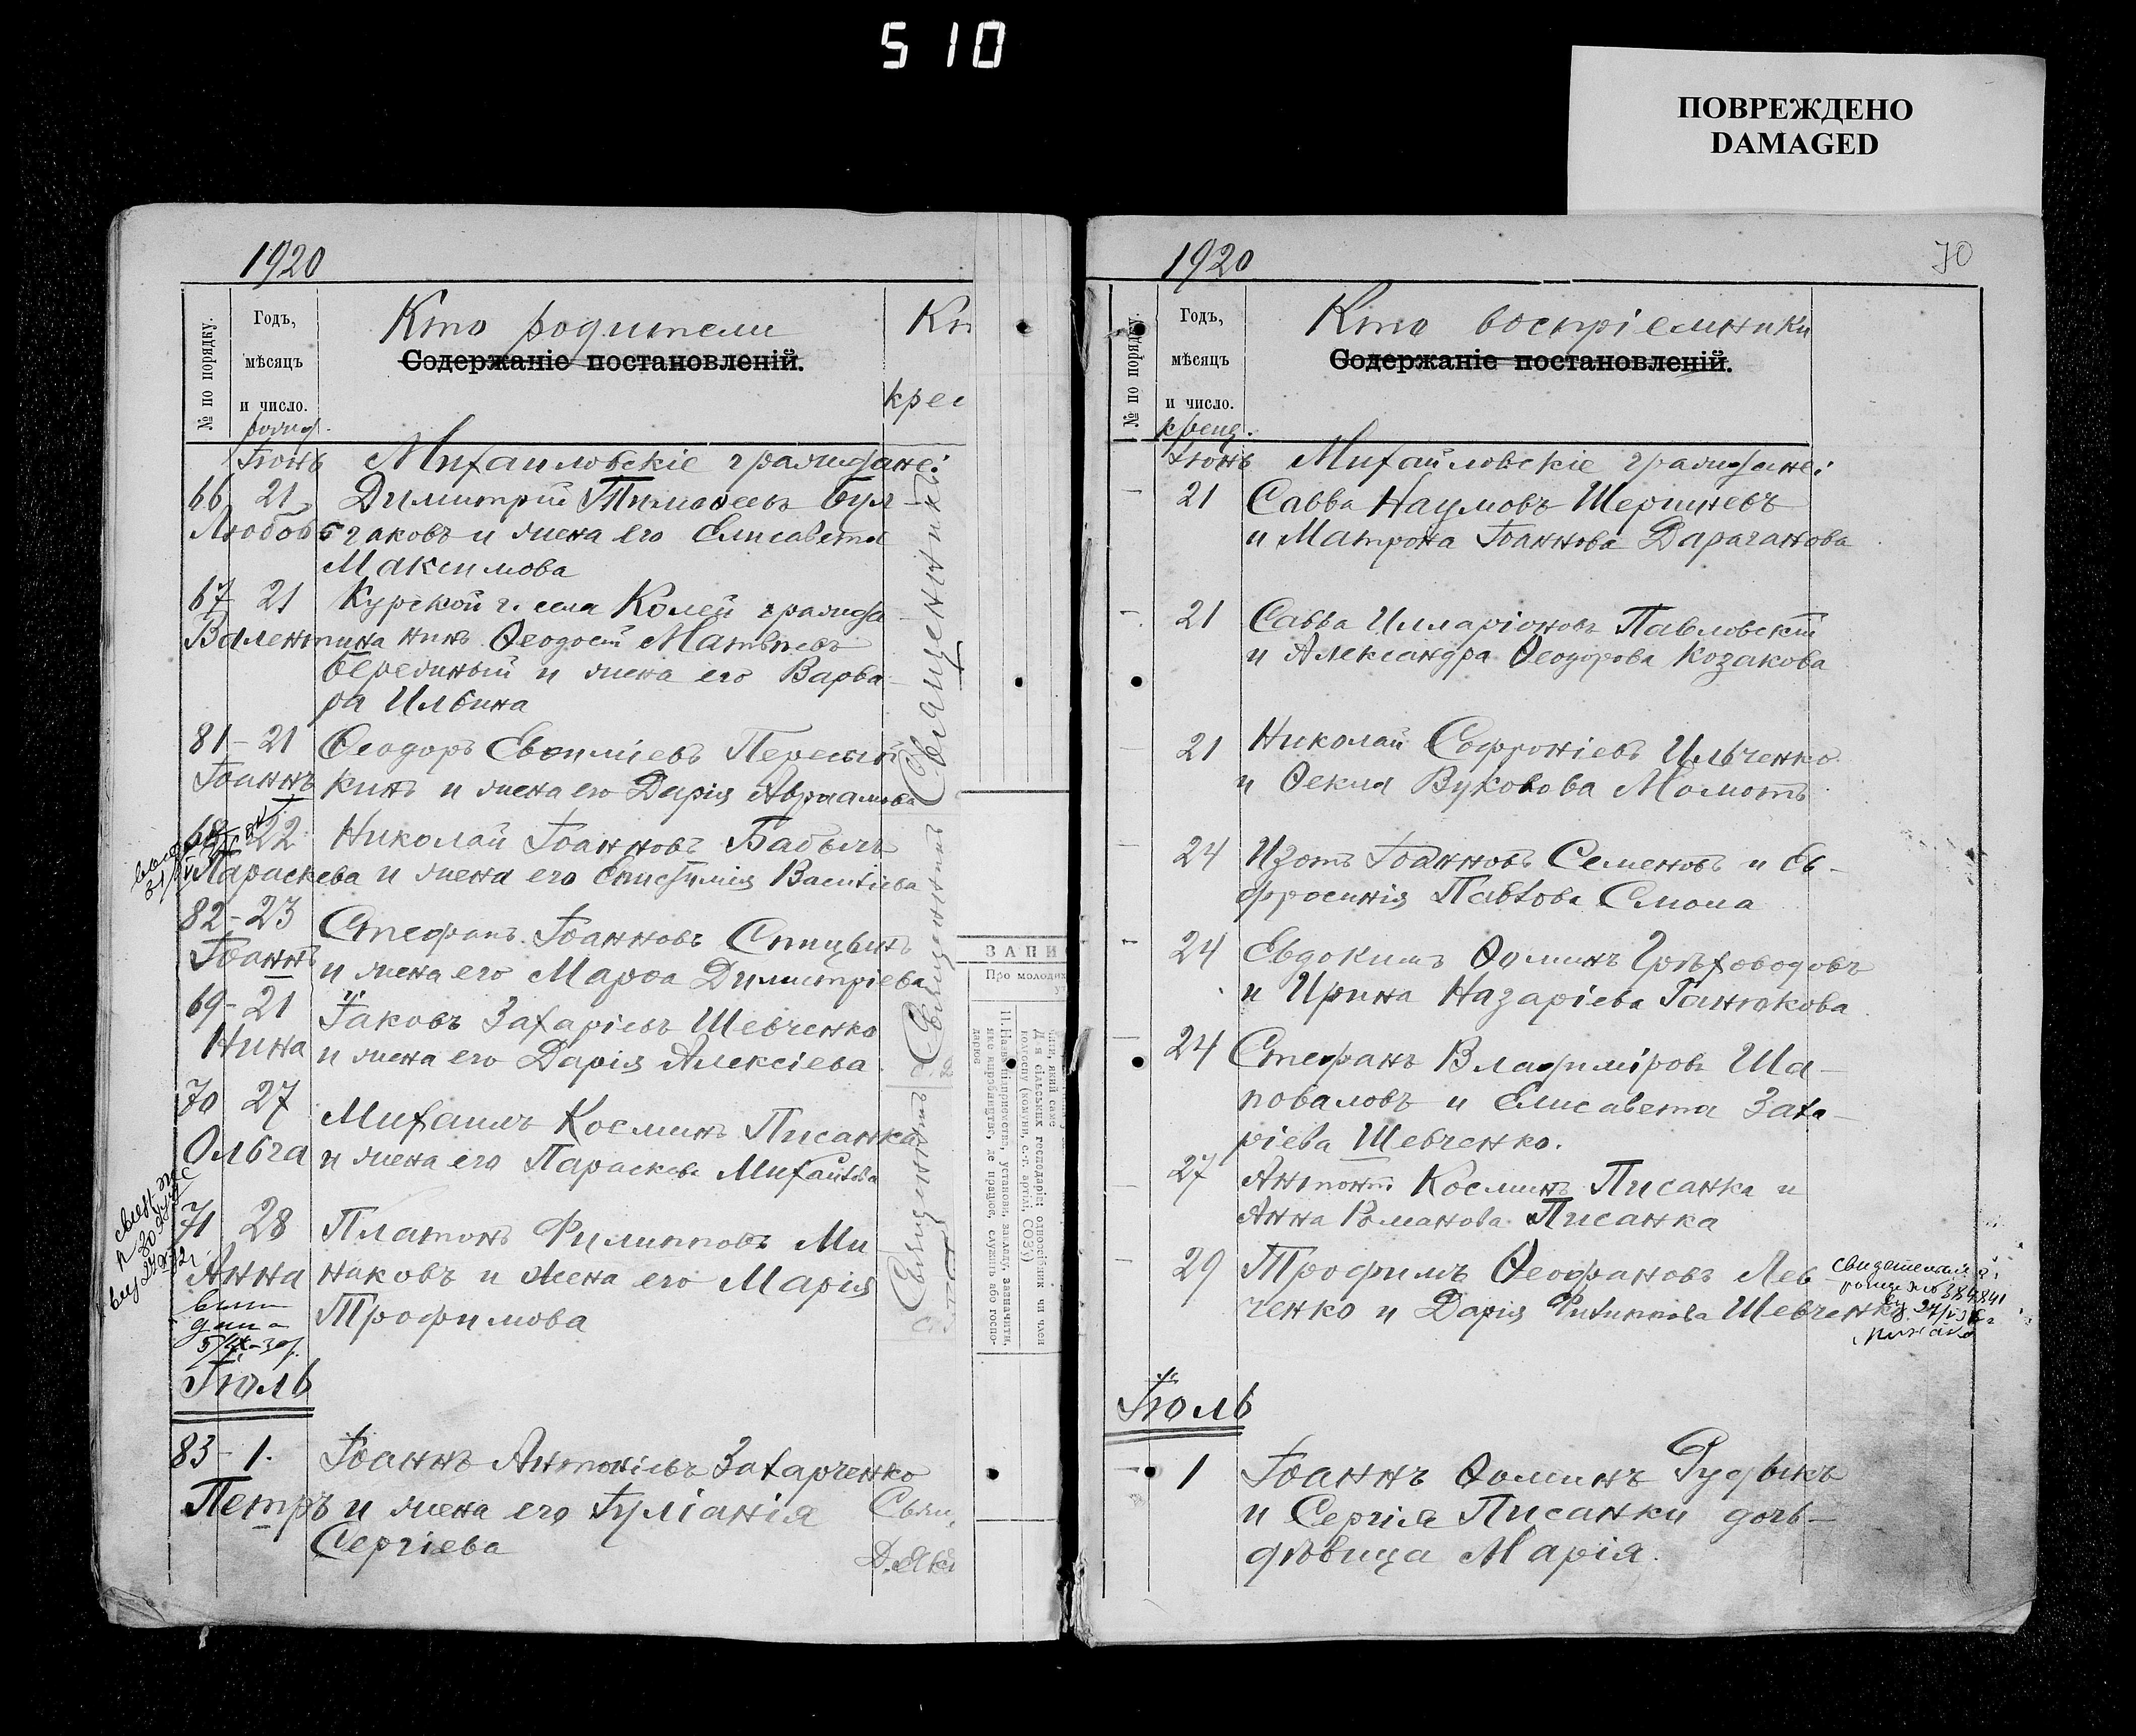 510
ПОВРЕЖДЕНО
DAMAGED
1920
№ по порядку.
Годъ,
мѣсяцъ
и число.
рожд.
Кто родители
Содержаніе постановленій.
Кт
крес
Іюнь Михаиловскіе граждане:
66 21 Димитрій Тимоѳеевъ Бул-
Любовь гаковъ и жена его Елисавета
Максимова
67 21 Курской г. села Колей гражда-
Валентина нинъ Ѳеодосій Матвѣевъ
и жена его Варва-
ра Ильина
81 - 21 Ѳеодоръ
Іоаннъ кинъ и жена его Дарія Авраамова
68 22 Николай Іоанновъ Бабычъ
Параскева и жена его Епистимія Василіева
82 - 23 Стефанъ Іоанновъ Спицынъ
Іоаннъ и жена его Марѳа Димитріева
69 - 21 Іаковъ Захаріевъ Шевченко
Нина и жена его Дарія Алексіева
70 27 Михаилъ Косминъ Писанка
Ольга и жена его Параскева Михайлова
71 28 Платонъ Филипповъ Ми
Анна наковъ и жена его Марія
Трофимова
Іюль
83 - 1. Іоаннъ Антоніевъ Захарченко
Петръ и жена его Іуліанія
Сергіева
Священникъ
Священникъ
Священникъ
Свящ.
ЗАПИ
Про молодих
1920
70
№ по порядку.
Годъ,
мѣсяцъ
и число.
крещ.
Кто воспріемники
Содержаніе постановленій.
Іюнь Михайловскіе граждане:
21 Савва Наумовъ Шершневъ
и Матрона Іоаннова Дараганова
21 Савва Илларіоновъ Павловскій
и Александра Ѳеодорова Козакова
21 Николай Софроніевъ Ильченко
и Ѳекла Вуколова Мамотъ
24 Изотъ Іоанновъ Семеновъ и Ев-
фросинія Павлова Смола
24 Евдокимъ Ѳоминъ Грѣховодовъ
и Ирина Назаріева Ганюкова
24 Стефанъ Владиміровъ Ша-
поваловъ и Елисавета Заха-
ріева Шевченко.
27 Антоній Косминъ Писанка и
Анна Романова Писанка
29 Трофимъ Ѳеофановъ Лев
ченко и Дарія Филиппова Шевченко
Іюль
1 Іоаннъ Ѳоминъ Рудыкъ
и Сергія Писанки дочь-
дѣвица Марія.